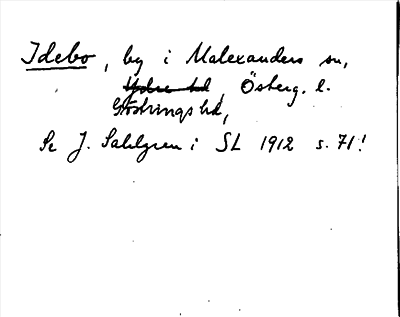 Idebo, by i Malexanders sn,
Ydre hd, Österg. l.
Göstringshd,
Se J. Sahlgren i SL 1912 s. 71!